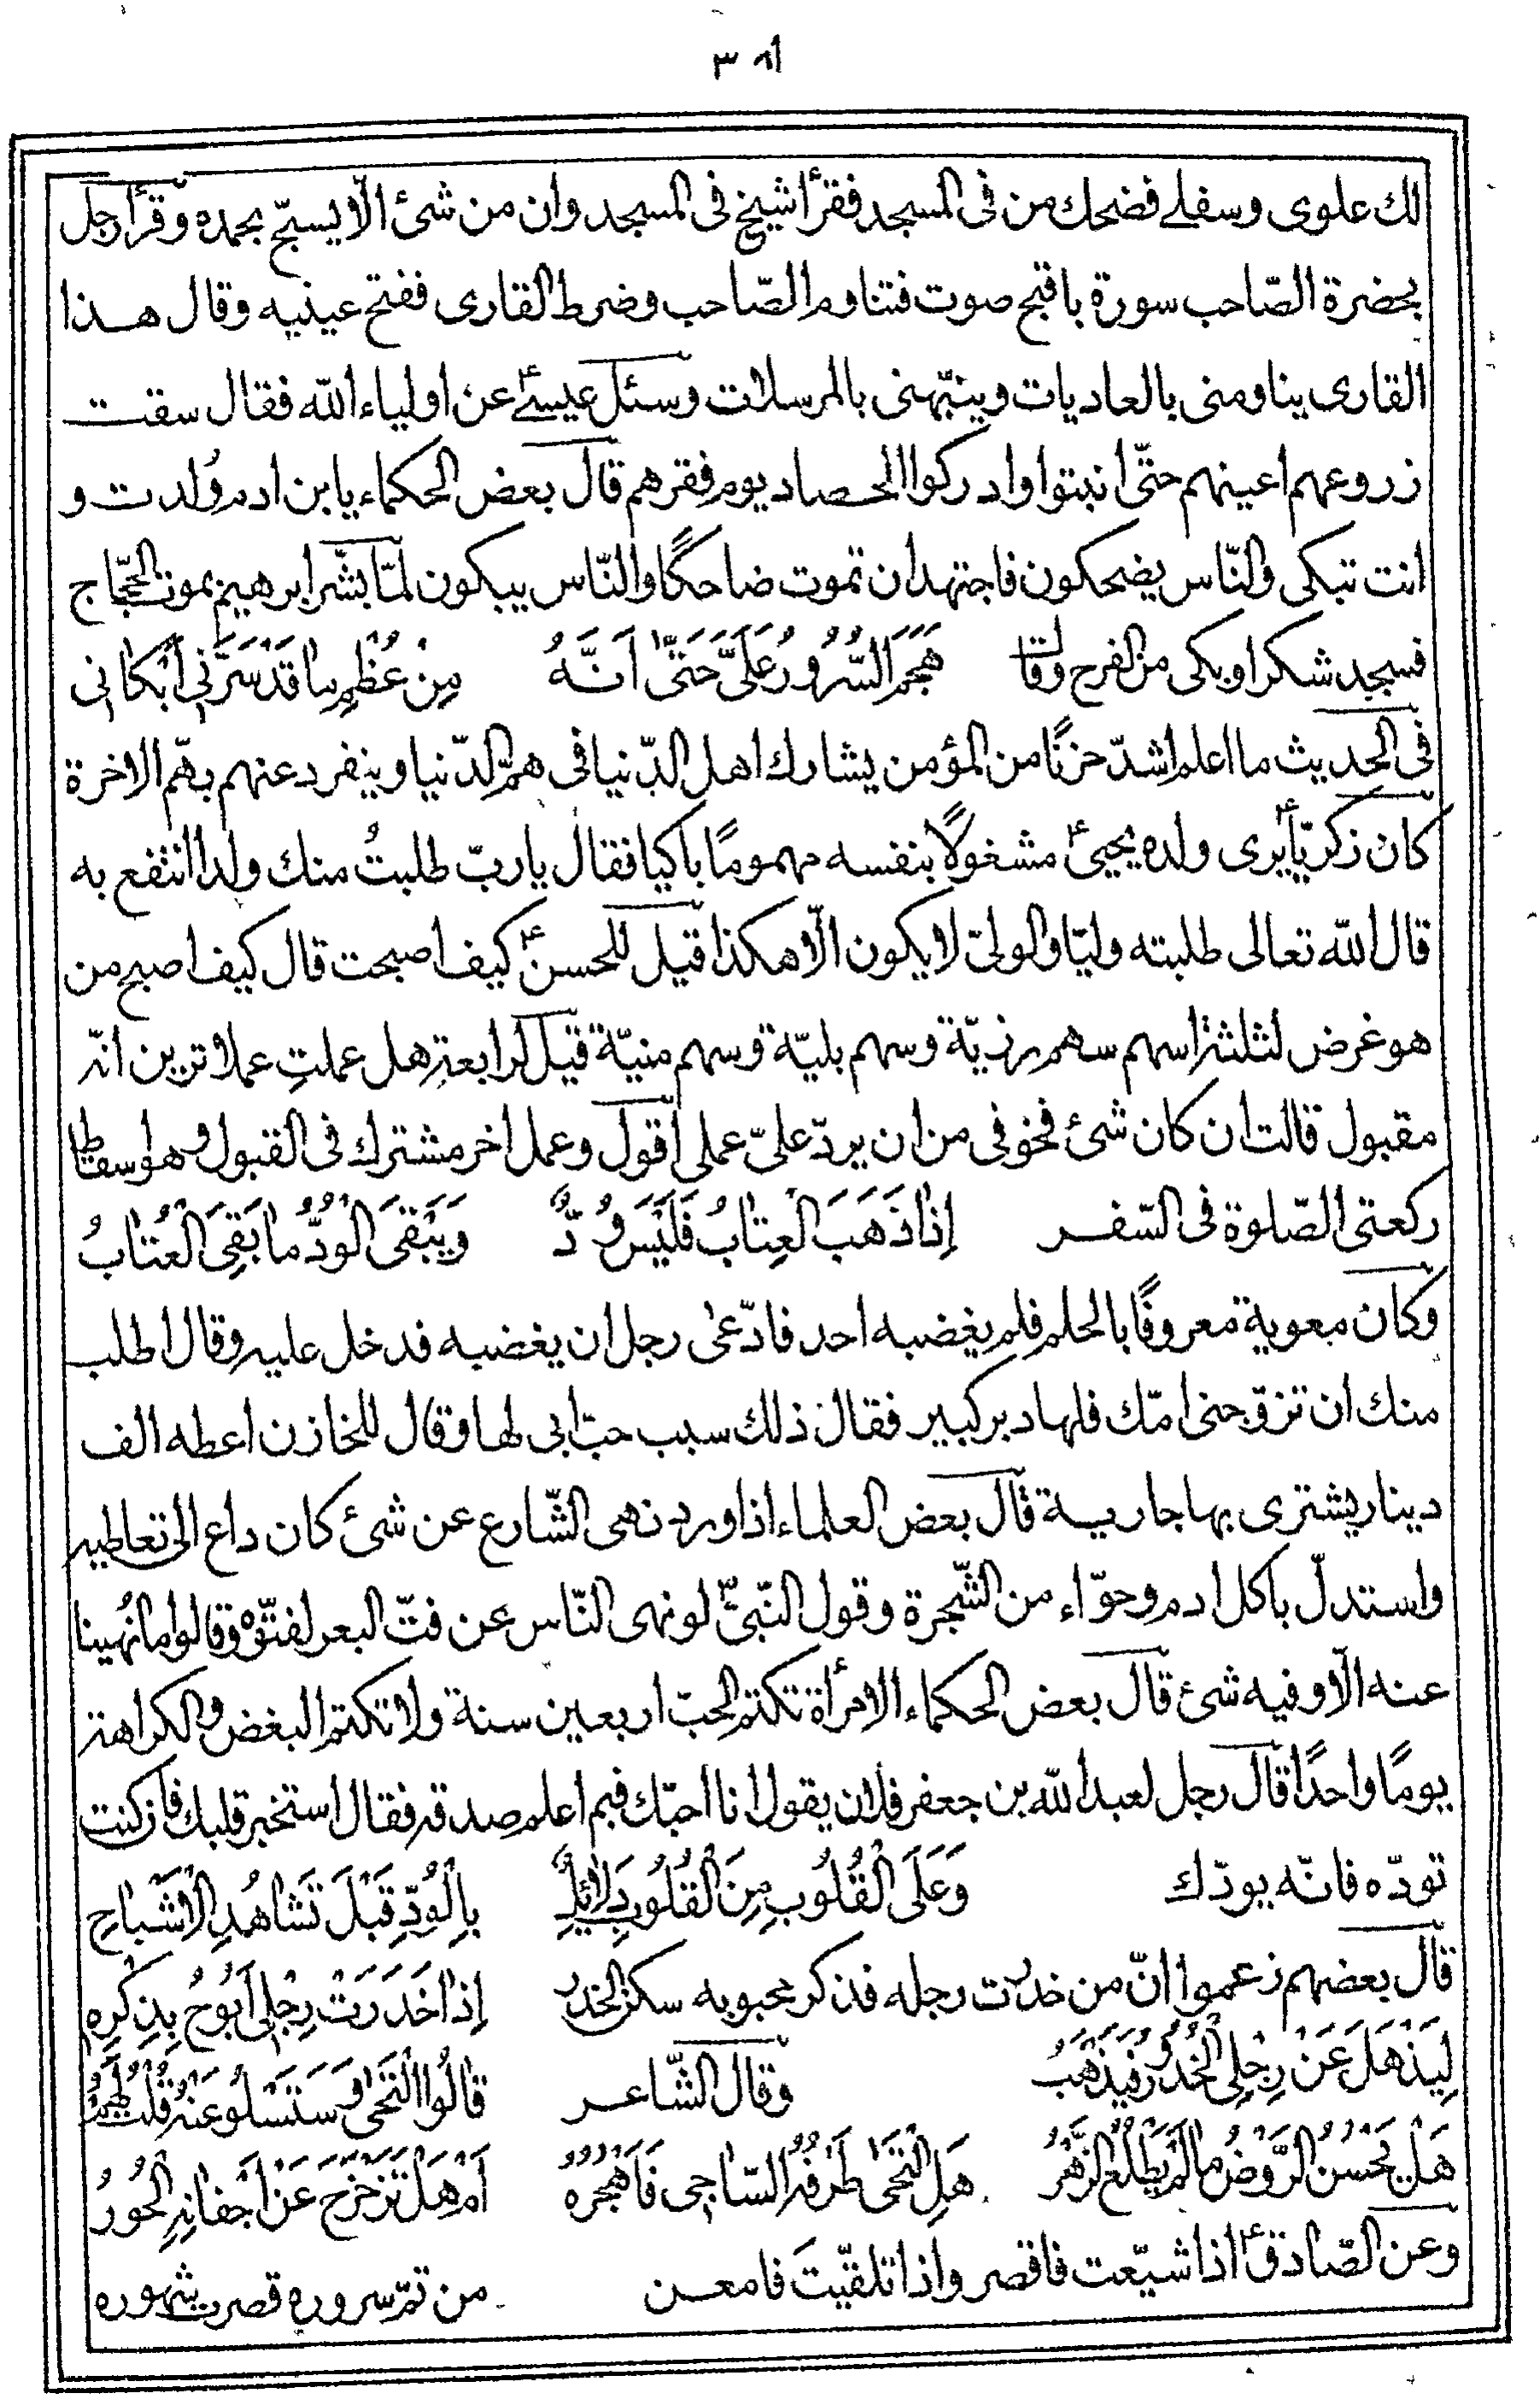 ٣٨١
لك علوى وسفلے فضحك من فى المسجد فقرأ شيخ فى المسجد وان من شئ الّا يسبّح بحمده وقرأ رجل
بحضرة الصّاحب سورة باقبح صوت فتناوم الصّاحب وضرط القارى ففتح عينيه وقال هذا
القارى يناومنى بالعاديات وينبّهنى بالمرسلات وسئل عيسےٰؑ عن اولياء الله فقال سقت
زروعهم اعينهم حتّى انبتوا وادركوا الحصاد يوم فقرهم قال بعض الحكماء يا بن ادم وُلدت و
انت تبكى والنّاس يضحكون فاجتهد ان تموت ضاحكًا والنّاس يبكون لمّا بشّر ابرهيم بموت الحجّاج
فسجد شكرا وبكى من الفرح وقال هَجَمَ السُّرُورُ عَلَىَّ حَتّىٰ اَنَّهُ مِنْ عُظْمِ ما قَدْ سَرَّنى اَبْكانى
فى الحديث ما اعلم اشدّ حزنًا من المؤمن يشارك اهل الدّنيا فى همّ الدّنيا وينفرد عنهم بهمّ الاخرة
كان زكريّاؑ يرى ولده يحيىؑ مشغولًا بنفسه مهمومًا باكيا فقال يا ربّ طلبتُ منك ولدا انتفع به
قال الله تعالى طلبته وليّا والولىّ لا يكون الّا هكذا قيل للحسنؑ كيف اصبحت قال كيف اصبح من
هو غرض لثلثة اسهم سهم رزيّة وسهم بليّة وسهم منيّة قيل لرابعة هل عملتِ عملا ترين انّه
مقبول قالت ان كان شئ فخوفى من ان يردّ علىّ عملى اقول وعمل اخر مشترك فى القبول وهو اسقاط
ركعتى الصّلوة فى السّفر اِذا ذَهَبَ الْعِتابُ فَلَيْسَ وُدٌّ وَيَبْقَى الْوُدُّ ما بَقِىَ الْعُتابُ
وكان معوية معروفًا بالحلم فلم يغضبه احد فادّعى رجل ان يغضبه فدخل عليه وقال اطلب
منك ان تزوّجنى امّك فلها دبر كبير فقال ذلك سبب حبّ ابى لها وقال للخازن اعطه الف
دينار يشترى بها جارية قال بعض العلماء اذا ورد نهى الشّارع عن شئ كان داع الى تعاطيه
واستدلّ باكل ادم وحوّاء من الشّجرة وقول النّبىّؐ لو نهى النّاس عن فتّ البعر لفتّوه وقالوا ما نُهينا
عنه الّا وفيه شئ قال بعض الحكماء الامرأة تكتم الحبّ اربعين سنة ولا تكتم البغض والكراهة
يومًا واحدًا قال رجل لعبد الله بن جعفر فلان يقول انا احبّك فبم اعلم صدقه فقال استخبر قلبك فان كنت
تودّه فانّه يودّك وَعَلَى الْقُلُوبِ مِنَ الْقُلُوبِ دَلائِلٌ بِالْوُدِّ قَبْلَ تَشاهُدِ الْاَشْباحِ
قال بعضهم زعموا انّ من خدرت رجله فذكر محبوبه سكن الخدر اِذا خَدَرَتْ رِجْلى اَبُوحُ بِذِكْرِهِ
لِيَذْهَلَ عَنْ رِجْلِى الْخُدُورُ فَيَذْهَبُ وقال الشّاعر قالُوا الْتَحىٰ وَسَتَسْلُو عَنْهُ قُلْتُ لَهُمْ
هَلْ يَحْسُنُ الرَّوْضُ ما لَمْ يَطْلُعِ الزَّهْرُ هَلِ الْتَحىٰ طَرْفُهُ السّاجى فَاَهْجُرُهُ اَمْ هَلْ تَزَحْزَحَ عَنْ اَجْفانِهِ الْحُورُ
وعن الصّادقؑ اذا شيّعت فاقصر واذا تلقّيتَ فامعن من تمّ سروره قصرت شهوره